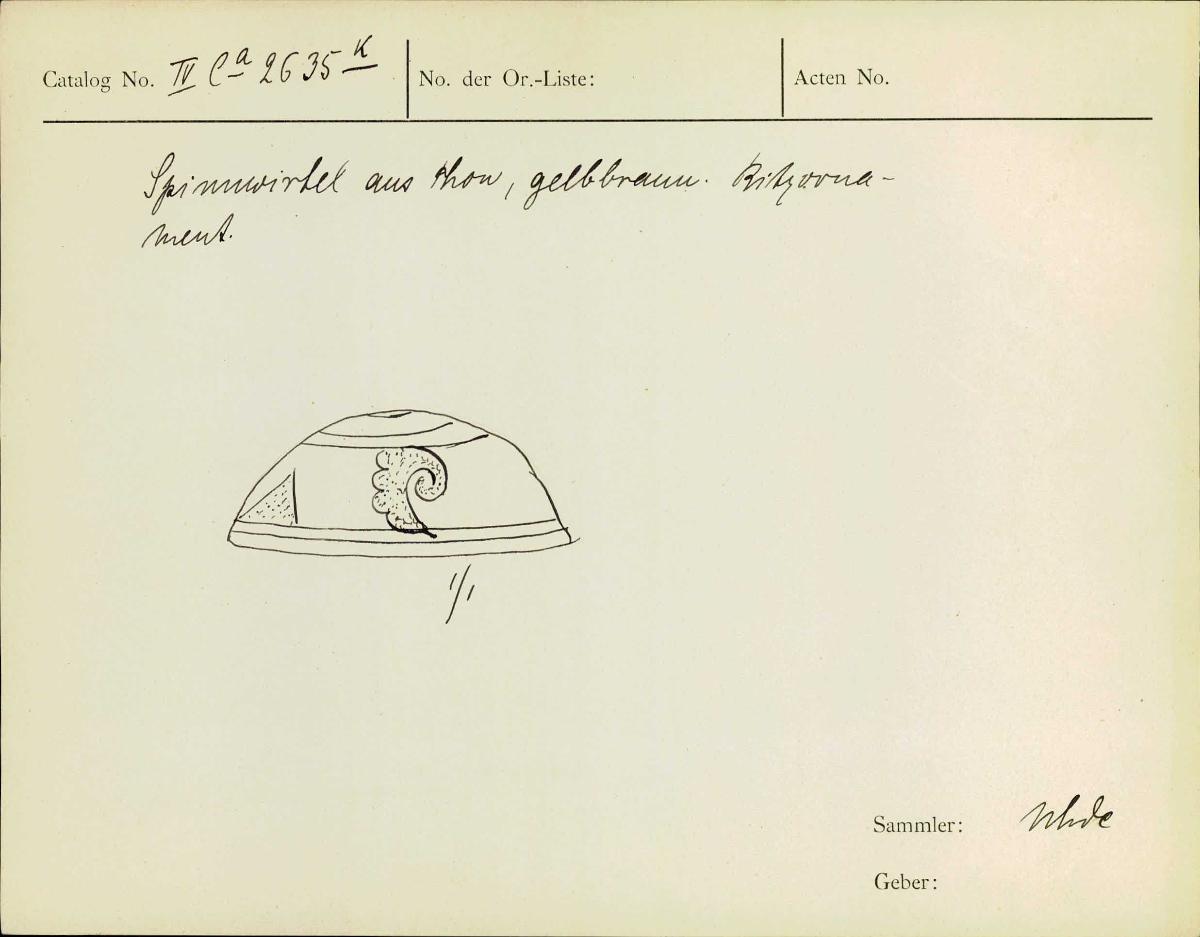 Catalog No. IV Ca 2635 k
No. der Or.-Liste:
Acten No.
Spinnwirtel aus Thon, gelbbraun. Ritzorna-
ment.
1/1
Sammler: Uhde
Geber: